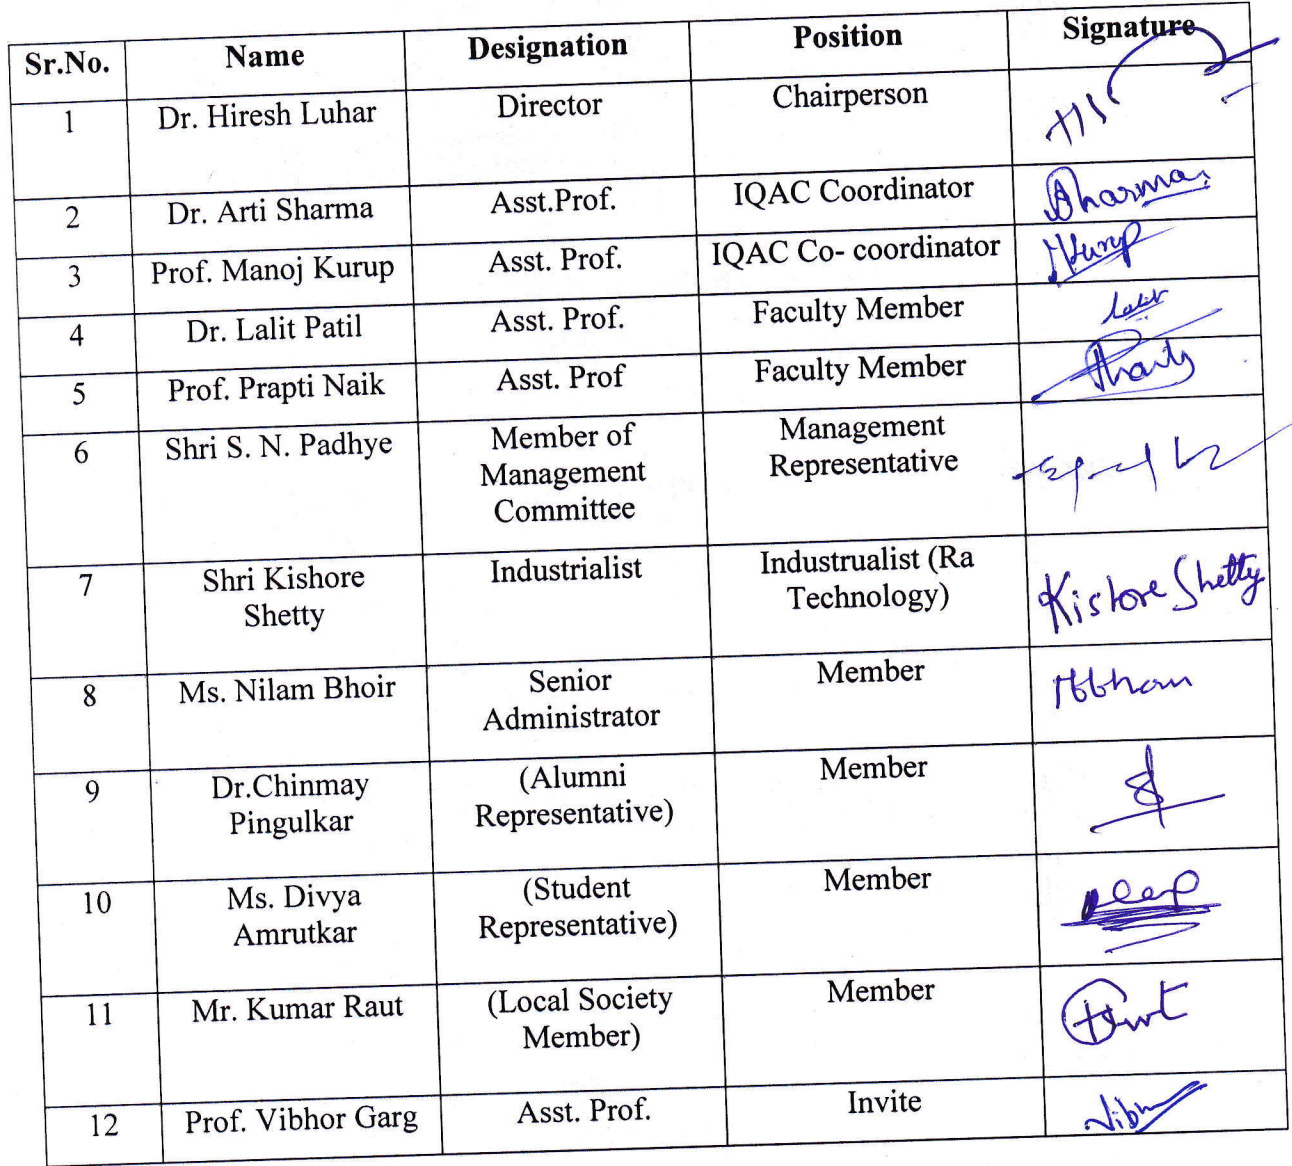 Sr.No. Name Designation Position Signature
1 Dr. Hiresh Luhar Director Chairperson
2 Dr. Arti Sharma Asst.Prof. IQAC Coordinator Sharma
3 Prof. Manoj Kurup Asst. Prof. IQAC Co- coordinator MKurup
4 Dr. Lalit Patil Asst. Prof. Faculty Member Lalit
5 Prof. Prapti Naik Asst. Prof Faculty Member
6 Shri S. N. Padhye Member of Management
Management Representative
Committee
7 Shri Kishore Industrialist Industrualist (Ra
Shetty Technology) Kishore Shetty
8 Ms. Nilam Bhoir Senior Member
Administrator
9 Dr.Chinmay (Alumni Member
Pingulkar Representative)
10 Ms. Divya (Student Member
Amrutkar Representative)
11 Mr. Kumar Raut (Local Society Member
Member)
12 Prof. Vibhor Garg Asst. Prof. Invite